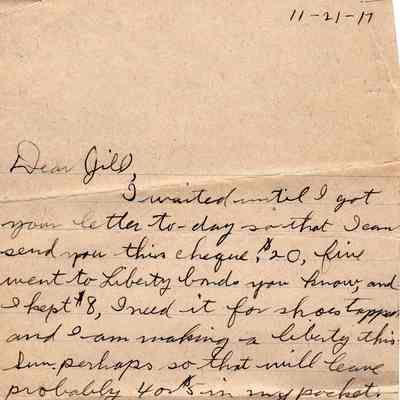 11-21-17
Dear Gill,
I waited until I got
your letter to-day so that I can
send you this cheque, $20, five
went to Liberty bonds you know, and
I kept $8, I need it for shoes tapped
and I am making a liberty this
Sun. perhaps so that will leave
probably 4 or $5 in my pocket.